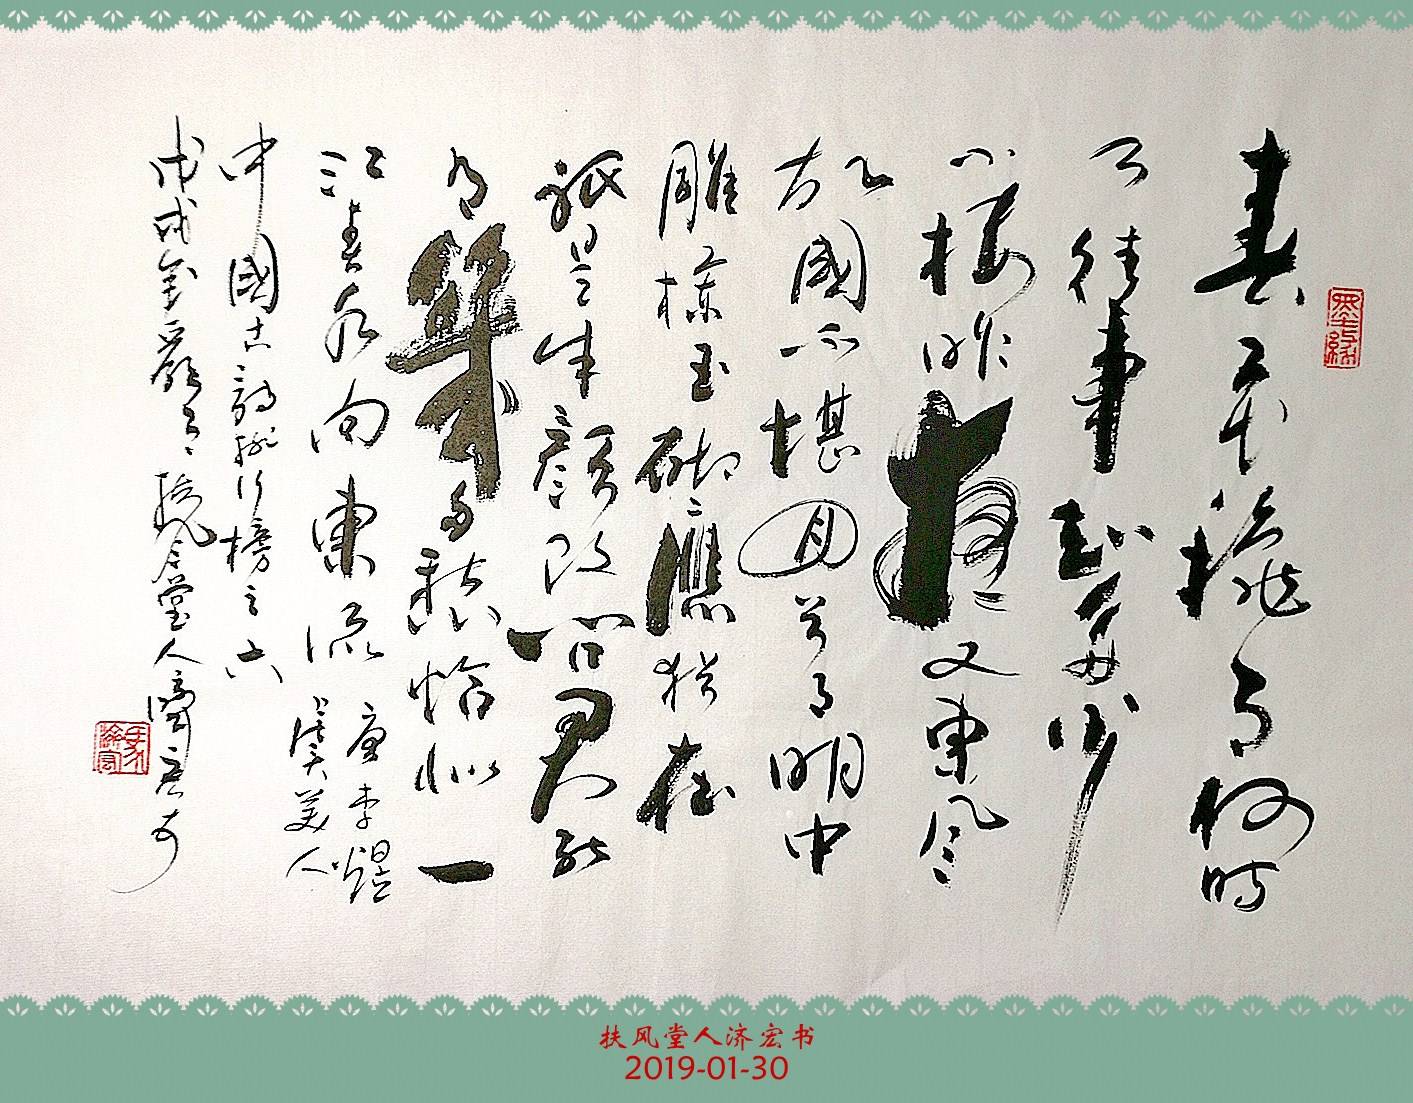 春花秋月何時
了往事知多少
小樓昨夜又東风
故國不堪回首月明中
雕欄玉砌應猶在
祇是朱顏改问君能
有幾多愁恰似一
江春水向東流 唐李煜
虞美人
中國古詩排行榜之六
戊戌 堂人濟宏书
扶风堂人济宏书
2019-01-30